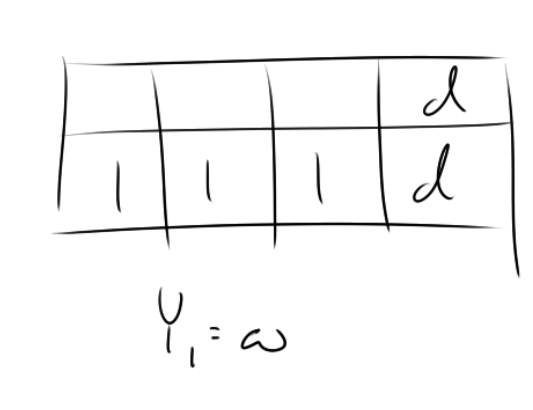 d
1 1 1 d
Y₁ = ω